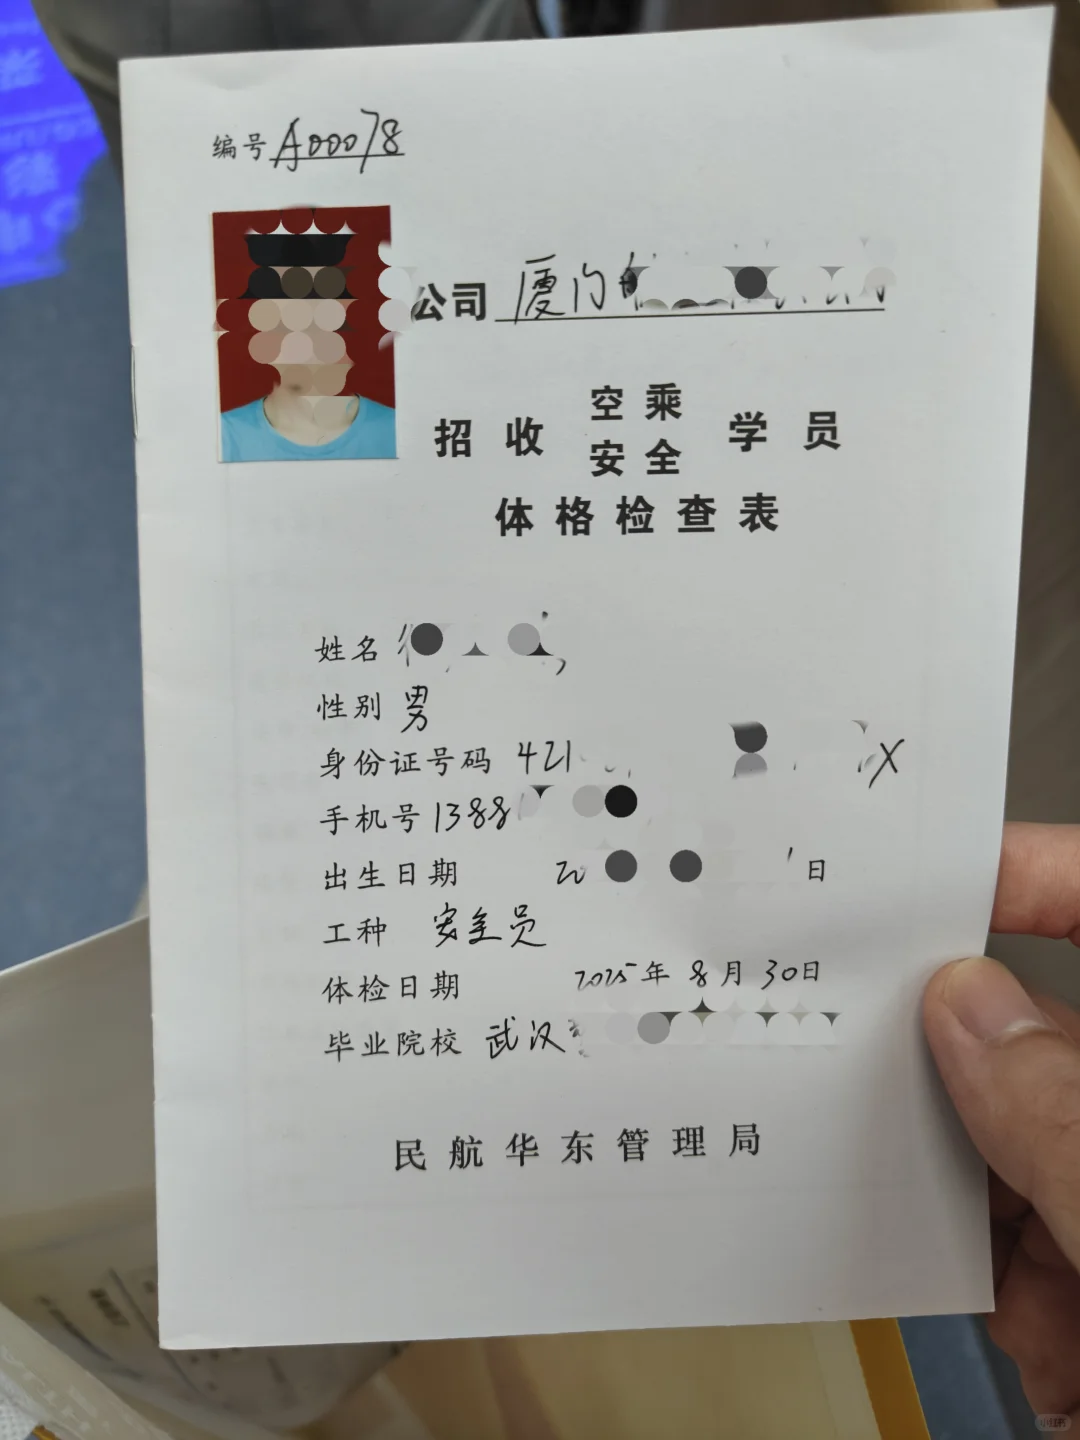 编号 A00078
公司 厦门
招收 空乘 学员
安全
体格检查表
姓名
性别 男
身份证号码 421 X
手机号 1388
出生日期 20 日
工种 安全员
体检日期 2025年 8月 30日
毕业院校 武汉
民航华东管理局